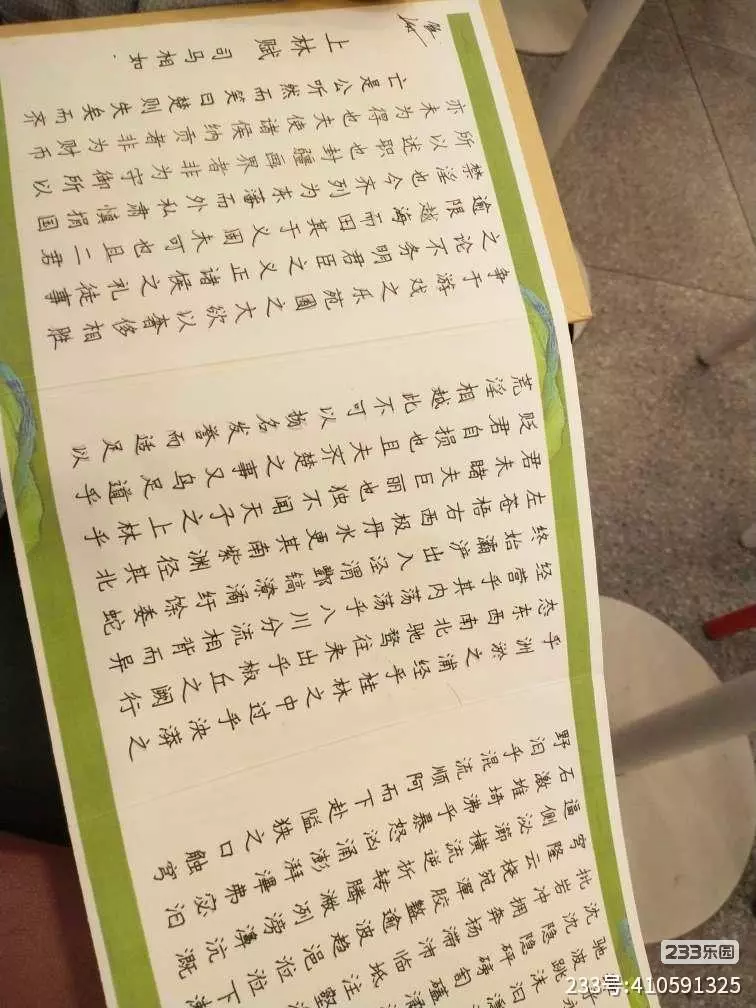 上林赋 司马相如
亡是公听然而笑曰楚则失矣而齐
亦未为得也夫使诸侯纳贡者非为财币
所以述职也封疆画界者非为守御所以
禁淫也今齐列为东藩而外私肃慎捐国
逾限越海而田其于义固未可也且二君
之论不务明君臣之义正诸侯之礼徒事
争于游戏之乐苑囿之大欲以奢侈相胜
荒淫相越此不可以扬名发誉而适足以
贬君自损也且夫齐楚之事又乌足道乎
君未睹夫巨丽也独不闻天子之上林乎
左苍梧右西极丹水更其南紫渊径其北
终始灞浐出入泾渭酆镐潦潏纡馀委蛇
经营乎其内荡荡乎八川分流相背而异
态东西南北驰骛往来出乎椒丘之阙行
乎洲淤之浦经乎桂林之中过乎泱漭之
野汩乎混流顺阿而下赴隘狭之口触穹
石激堆埼沸乎暴怒汹涌澎湃滭弗宓汩
逼侧泌瀄横流逆折转腾潎冽滂濞沆溉
穹隆云桡宛潬胶盭逾波趋浥涖涖下
批岩冲拥奔扬滞沛临坻注壑
沈沈隐隐砰磅訇磕
驰波跳沫汩
233乐园
233号:410591325